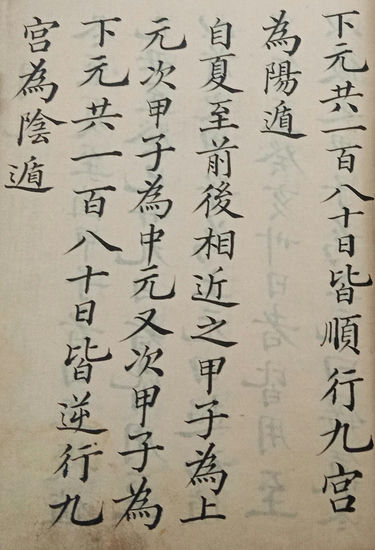 下元共一百八十日皆順行九宮
為陽遁
自夏至前後相近之甲子為上
元次甲子為中元又次甲子為
下元共一百八十日皆逆行九
宮為陰遁